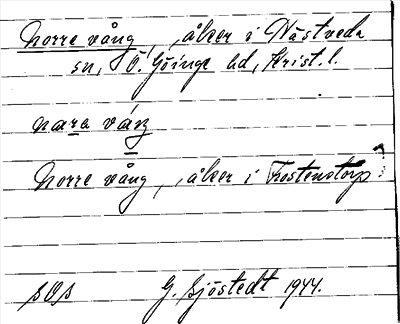 Norre vång, åker i Västveda
sn, Ö. Göinge hd, Krist. l.
nara váŋ
Norre vång, åker i Frostentorp.
SOS G. Sjöstedt 1944.